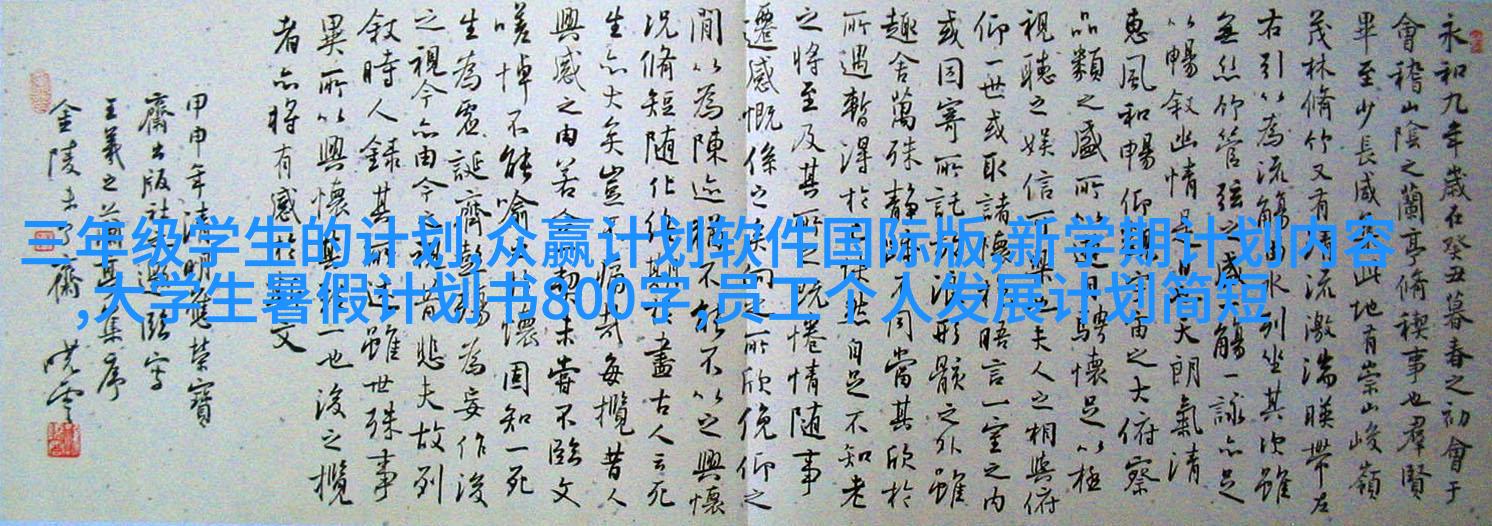 永和九年歲在癸丑暮春之初會于
會稽山陰之蘭亭脩稧事也羣賢
畢至少長咸集此地有崇山峻嶺
茂林脩竹又有清流激湍暎帶左
右引以為流觴曲水列坐其次雖
無絲竹管弦之盛一觴一詠亦足
以暢叙幽情是日也天朗氣清
惠風和暢仰觀宇宙之大俯察
品類之盛所以遊目騁懷足以極
視聽之娛信可樂也夫人之相與俯
仰一世或取諸懷抱晤言一室之內
或因寄所託放浪形骸之外雖
趣舍萬殊靜躁不同當其欣於
所遇暫得於己快然自足不知老
之將至及其所之既惓情隨事
遷感慨係之矣向之所欣俛仰之
間以為陳迹猶不能不以之興懷
況脩短随化終期於盡古人云死
生亦大矣豈不痛哉每攬昔人
興感之由若合一契未嘗不臨文
嗟悼不能喻之於懷固知一死
生為虛誕齊彭殤為妄作後
之視今亦由今之視昔悲夫故列
叙時人錄其所述雖世殊事
異所以興懷其致一也後之攬
者亦將有感於斯文
甲申年清明應榮寶
齋出版社之邀臨写
王羲之蘭亭集序
金陵未了齋
三年级学生的计划,众赢计划软件国际版,新学期计划内容
,大学生暑假计划书800字,员工个人发展计划简短